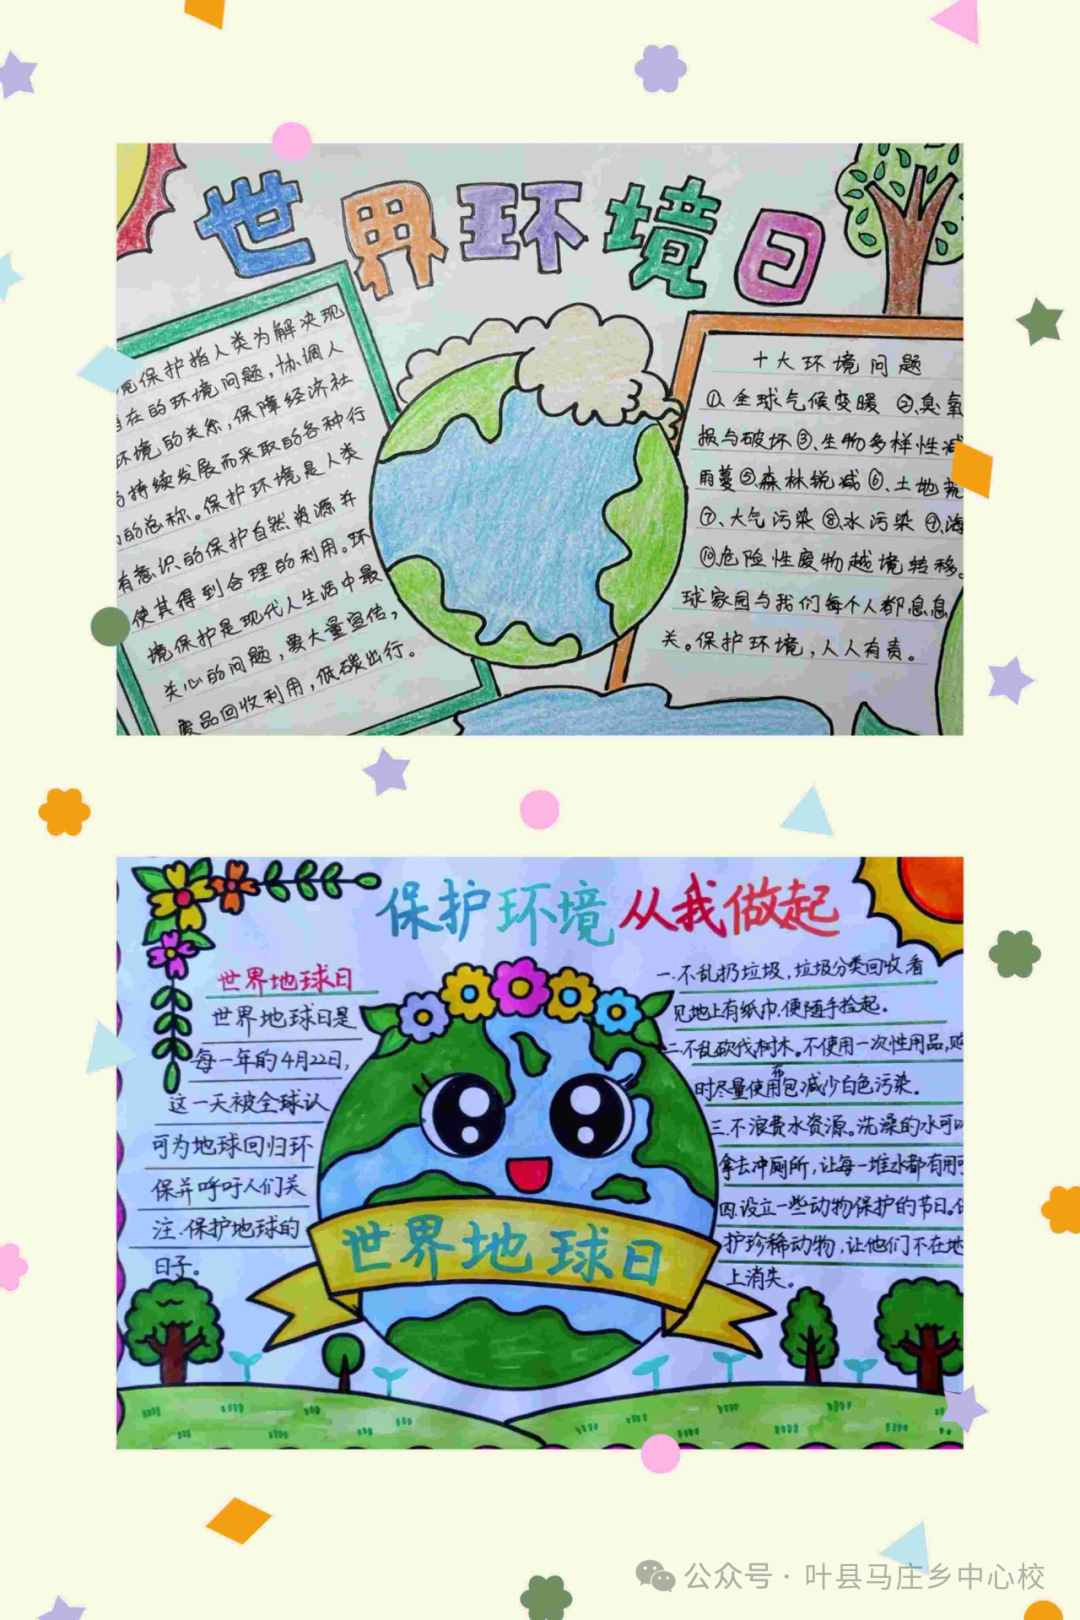 世界环境日
境保护指人类为解决现
在的环境问题，协调人
环境的关系，保障经济社
持续发展而采取的各种行
的总称。保护环境是人类
有意识的保护自然资源并
使其得到合理的利用。环
境保护是现代人生活中最
关心的问题，要大量宣传，
废品回收利用，低碳出行。
十大环境问题
①、全球气候变暖 ②、臭氧
损与破坏③、生物多样性减
雨蔓⑤、森林锐减⑥、土地荒
⑦、大气污染⑧、水污染⑨、海
⑩危险性废物越境转移。
球家园与我们每个人都息息
关。保护环境，人人有责。
保护环境从我做起
世界地球日
世界地球日是
每一年的4月22日，
这一天被全球认
可为地球回归环
保并呼吁人们关
注.保护地球的
日子。
一.不乱扔垃圾，垃圾分类回收.看
见地上有纸巾.便随手捡起。
二.不乱砍伐树木。不使用一次性用品，购
时尽量使用布包减少白色污染。
三.不浪费水资源。洗澡的水可以
拿去冲厕所，让每一堆水都有用
四.设立一些动物保护的节日。
护珍稀动物，让他们不在地
上消失。
世界地球日
公众号·叶县马庄乡中心校